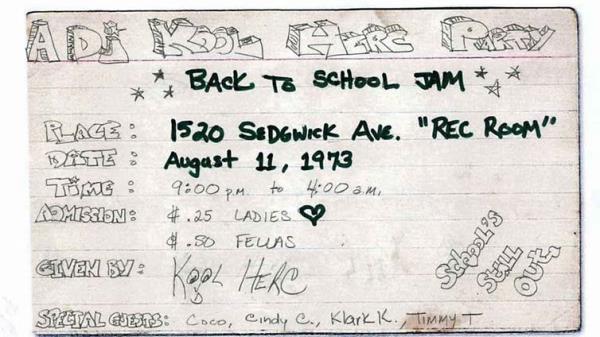 A DJ KOOL HERC PARTY
BACK TO SCHOOL JAM
PLACE: 1520 SEDGWICK AVE. "REC ROOM"
DATE: August 11, 1973
TIME: 9:00 p.m. to 4:00 a.m.
ADMISSION: $.25 LADIES ♥
$.50 FELLAS
GIVEN BY: KOOL HERC
School's
Still
Out.
SPECIAL GUESTS: Coco, Cindy C., Klark K., Timmy T